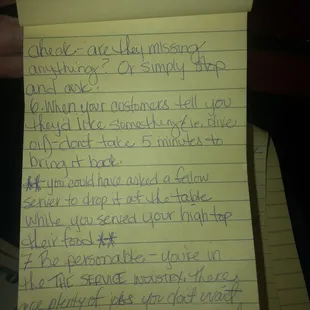 check - are they missing
anything? Or simply stop
and ask.
6. When your customers tell you
they'd like something (i.e. olive
oil) - don't take 5 minutes to
bring it back.
** you could have asked a fellow
server to drip it at the table
while you served your high top
their food **
7. Be personable - you're in
the THE SERVICE INDUSTRY. There
are plenty of jobs you don't wait